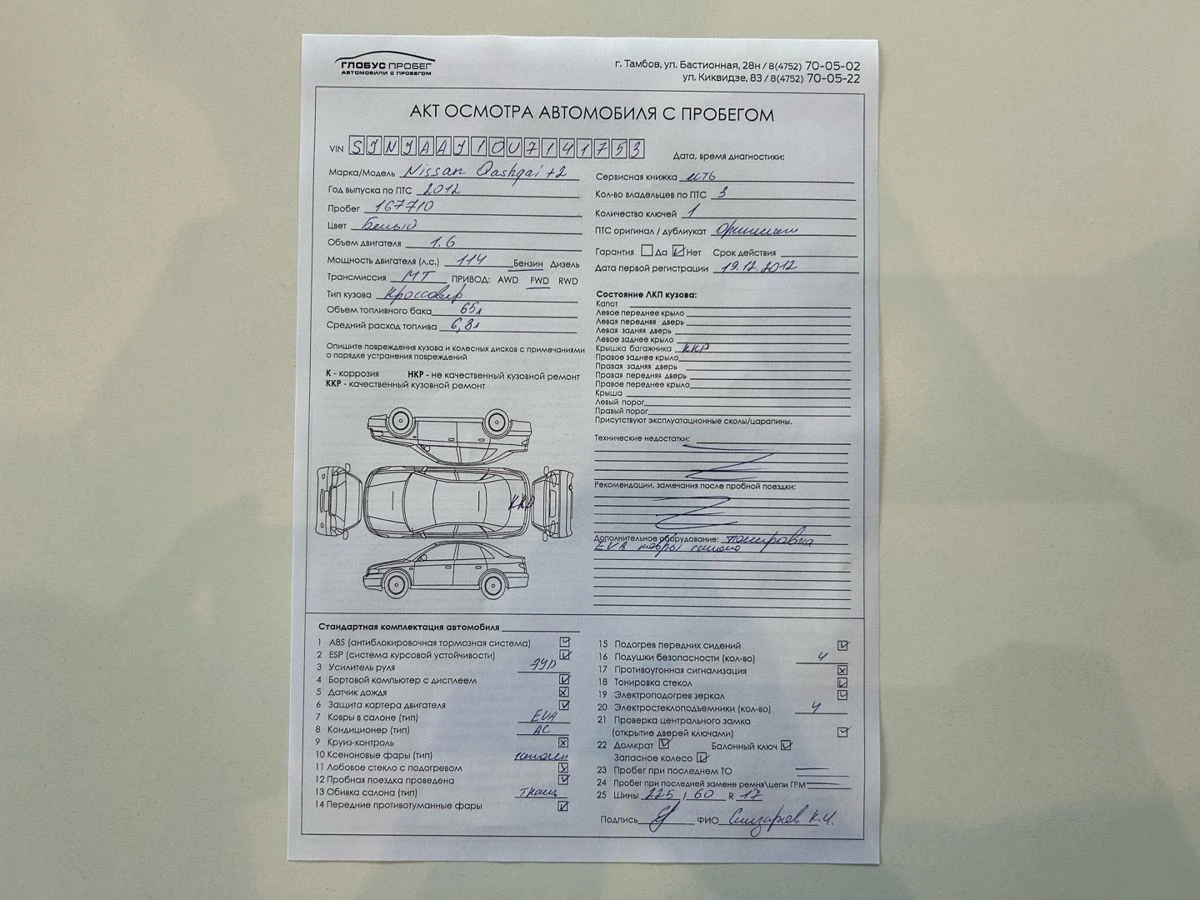 ГЛОБУС ПРОБЕГ
АВТОМОБИЛИ С ПРОБЕГОМ
г. Тамбов, ул. Бастионная, 28н / 8(4752) 70-05-02
ул. Киквидзе, 83 / 8(4752) 70-05-22
АКТ ОСМОТРА АВТОМОБИЛЯ С ПРОБЕГОМ
VIN SJNJAAJ10U7141753
Марка/Модель Nissan Qashqai +2
Год выпуска по ПТС 2012
Пробег 167710
Цвет Белый
Объем двигателя 1.6
Мощность двигателя (л.с.) 114 Бензин Дизель
Трансмиссия МТ ПРИВОД: AWD FWD RWD
Тип кузова Кроссовер
Объем топливного бака 65л
Средний расход топлива 6,8л
Дата, время диагностики:
Сервисная книжка есть
Кол-во владельцев по ПТС 3
Количество ключей 1
ПТС оригинал / дубликат Оригинал
Гарантия Да Нет Срок действия
Дата первой регистрации 19.12.2012
Опишите повреждения кузова и колесных дисков с примечаниями
о порядке устранения повреждений
К - коррозия НКР - не качественный кузовной ремонт
ККР - качественный кузовной ремонт
ККР
Состояние ЛКП кузова:
Капот
Левое переднее крыло
Левая передняя дверь
Левая задняя дверь
Левое заднее крыло
Крышка багажника ККР
Правое заднее крыло
Правая задняя дверь
Правая передняя дверь
Правое переднее крыло
Крыша
Левый порог
Правый порог
Присутствуют эксплуатационные сколы/царапины.
Технические недостатки:
Рекомендации, замечания после пробной поездки:
Дополнительное оборудование: тонировка
EVA ковры салона
Стандартная комплектация автомобиля
1 ABS (антиблокировочная тормозная система)
2 ESP (система курсовой устойчивости)
3 Усилитель руля ЭУР
4 Бортовой компьютер с дисплеем
5 Датчик дождя
6 Защита картера двигателя
7 Ковры в салоне (тип) EVA
8 Кондиционер (тип) АС
9 Круиз-контроль
10 Ксеноновые фары (тип) галоген
11 Лобовое стекло с подогревом
12 Пробная поездка проведена
13 Обивка салона (тип) ткань
14 Передние противотуманные фары
15 Подогрев передних сидений
16 Подушки безопасности (кол-во) 4
17 Противоугонная сигнализация
18 Тонировка стекол
19 Электроподогрев зеркал
20 Электростеклоподъемники (кол-во) 4
21 Проверка центрального замка
(открытие дверей ключами)
22 Домкрат Балонный ключ
Запасное колесо
23 Пробег при последнем ТО
24 Пробег при последней замене ремня\цепи ГРМ
25 Шины 225 / 60 R 17
Подпись ФИО К.И.